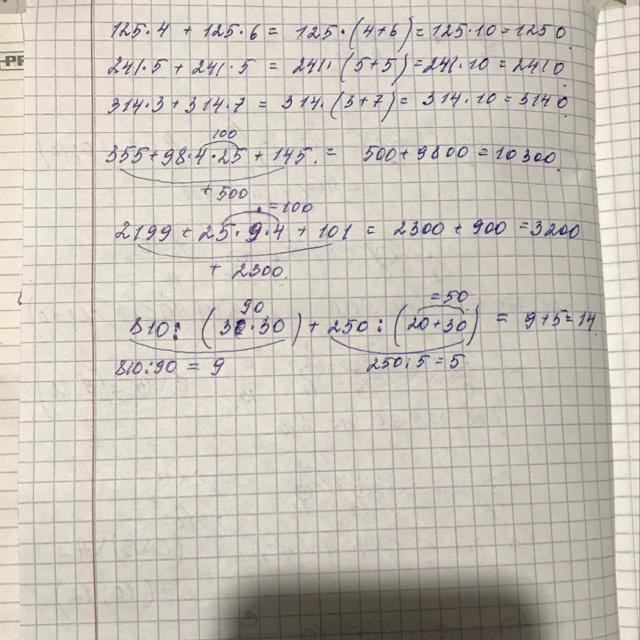 125·4 + 125·6 = 125·(4+6) = 125·10 = 1250
241·5 + 241·5 = 241·(5+5) = 241·10 = 2410
314·3 + 314·7 = 314·(3+7) = 314·10 = 3140
100
355 + 98·4·25 + 145 = 500 + 9800 = 10300
+ 500
= 100
2199 + 25·9·4 + 101 = 2300 + 900 = 3200
+ 2300
90 = 50
810 : (30·30) + 250 : (20+30) = 9+5=14
810:90 = 9 250:5 = 5